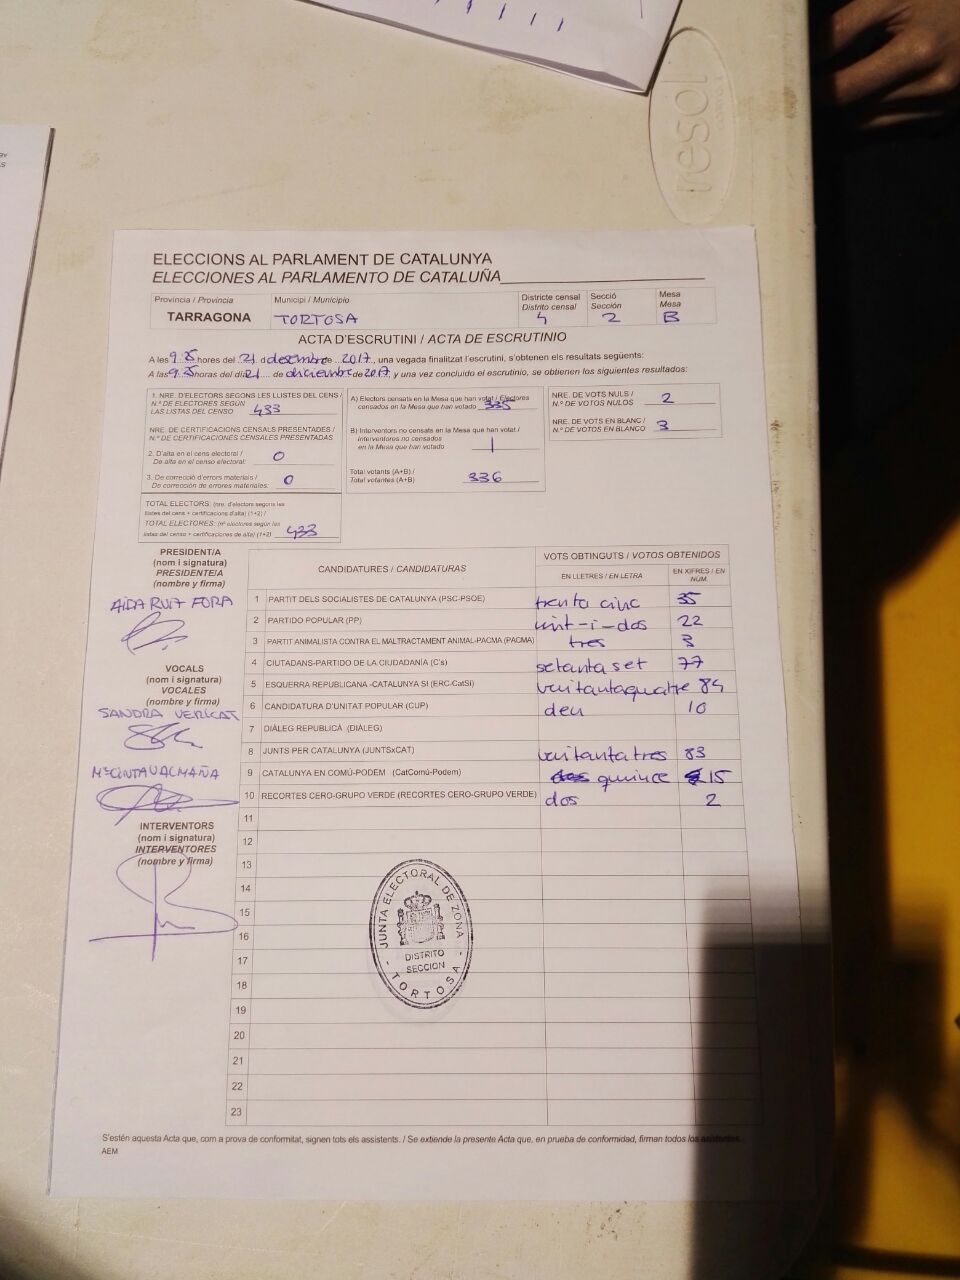 resol
ELECCIONS AL PARLAMENT DE CATALUNYA
ELECCIONES AL PARLAMENTO DE CATALUÑA
Província / Provincia
TARRAGONA
Municipi / Municipio
TORTOSA
Districte censal
Distrito censal
4
Secció
Sección
2
Mesa
Mesa
B
ACTA D'ESCRUTINI / ACTA DE ESCRUTINIO
A les 9.25 hores del 21 d desembre de 2017, una vegada finalitzat l'escrutini, s'obtenen els resultats següents:
A las 9.25 horas del día 21 de diciembre de 2017, y una vez concluido el escrutinio, se obtienen los siguientes resultados:
1. NRE. D'ELECTORS SEGONS LES LLISTES DEL CENS /
N.º DE ELECTORES SEGÚN
LAS LISTAS DEL CENSO 433
NRE. DE CERTIFICACIONS CENSALS PRESENTADES /
N.º DE CERTIFICACIONES CENSALES PRESENTADAS
2. D'alta en el cens electoral /
De alta en el censo electoral: 0
3. De correcció d'errors materials /
De corrección de errores materiales: 0
TOTAL ELECTORS: (nre. d'electors segons les
llistes del cens + certificacions d'alta) (1+2) /
TOTAL ELECTORES: (nº electores según las
listas del censo + certificaciones de alta) (1+2) 433
A) Electors censats en la Mesa que han votat / Electores
censados en la Mesa que han votado 335
B) Interventors no censats en la Mesa que han votat /
Interventores no censados
en la Mesa que han votado 1
Total votants (A+B) /
Total votantes (A+B) 336
NRE. DE VOTS NULS /
N.º DE VOTOS NULOS 2
NRE. DE VOTS EN BLANC /
N.º DE VOTOS EN BLANCO 3
PRESIDENT/A
(nom i signatura)
PRESIDENTE/A
(nombre y firma)
AÏDA RUIZ FORA
VOCALS
(nom i signatura)
VOCALES
(nombre y firma)
SANDRA VERICAT
Mª CINTA VALMAÑA
INTERVENTORS
(nom i signatura)
INTERVENTORES
(nombre y firma)
CANDIDATURES / CANDIDATURAS
VOTS OBTINGUTS / VOTOS OBTENIDOS
EN LLETRES / EN LETRA
EN XIFRES / EN NUM.
1 PARTIT DELS SOCIALISTES DE CATALUNYA (PSC-PSOE) trenta cinc 35
2 PARTIDO POPULAR (PP) vint-i-dos 22
3 PARTIT ANIMALISTA CONTRA EL MALTRACTAMENT ANIMAL-PACMA (PACMA) tres 3
4 CIUTADANS-PARTIDO DE LA CIUDADANÍA (C's) setanta set 77
5 ESQUERRA REPUBLICANA -CATALUNYA SÍ (ERC-CatSí) vuitantaquatre 84
6 CANDIDATURA D'UNITAT POPULAR (CUP) deu 10
7 DIÀLEG REPUBLICÀ (DIÀLEG)
8 JUNTS PER CATALUNYA (JUNTSxCAT) vuitanta tres 83
9 CATALUNYA EN COMÚ-PODEM (CatComú-Podem) quince 15
10 RECORTES CERO-GRUPO VERDE (RECORTES CERO-GRUPO VERDE) dos 2
11
12
13
14
15
16
17
18
19
20
21
22
23
JUNTA ELECTORAL DE ZONA
DISTRITO
SECCION
- TORTOSA -
S'estén aquesta Acta que, com a prova de conformitat, signen tots els assistents. / Se extiende la presente Acta que, en prueba de conformidad, firman todos los asistentes.
AEM